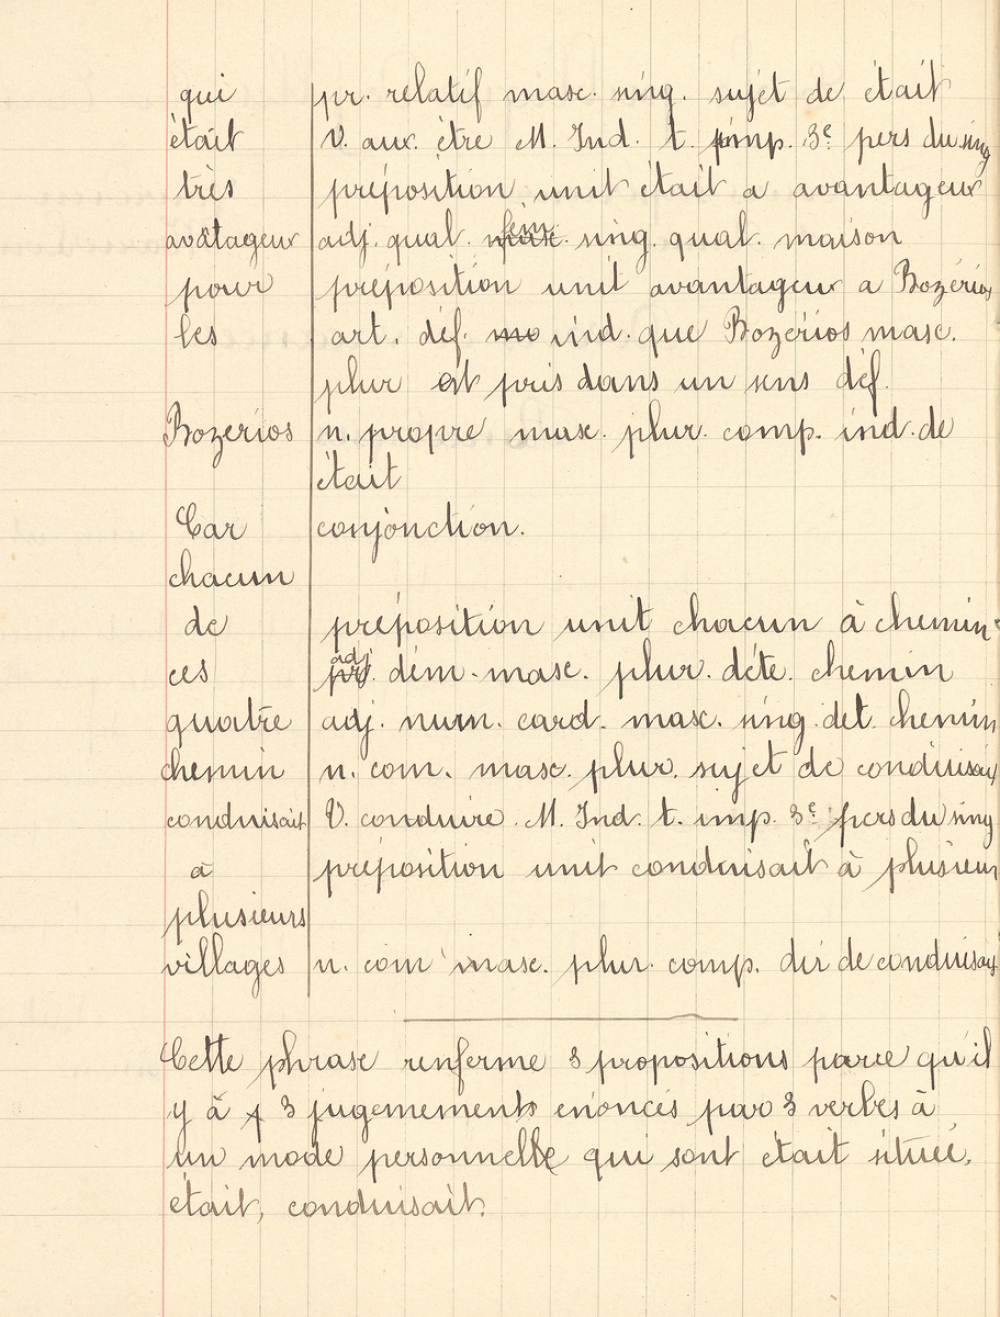 qui pr. relatif masc. sing. sujet de était
était V. aux. être M. Ind. t. imp. 3e pers du sing
très préposition unit était a avantageux
avatageux adj. qual. masc. fém. sing. qual. maison
pour préposition unit avantageux a Bozérios
les art. déf. mo ind. que Bozérios masc.
plur est pris dans un sens déf.
Bozerios n. propre masc. plur. comp. ind. de
était
Car conjonction.
chacun
de préposition unit chacun à chemin
ces pro. adj. dém. masc. plur. déte. chemin
quatre adj. num. card. masc. sing. det. chemin
chemin n. com. masc. plur. sujet de conduisait
conduisait V. conduire. M. Ind. t. imp. 3e pers du sing
à préposition unit conduisait à plusieurs
plusieurs
villages n. com masc. plur. comp. dir de conduisait
Cette phrase renferme 3 propositions parce qu'il
y à 3 jugemements énoncés par 3 verbes à
un mode personnelle qui sont était située,
était, conduisait.